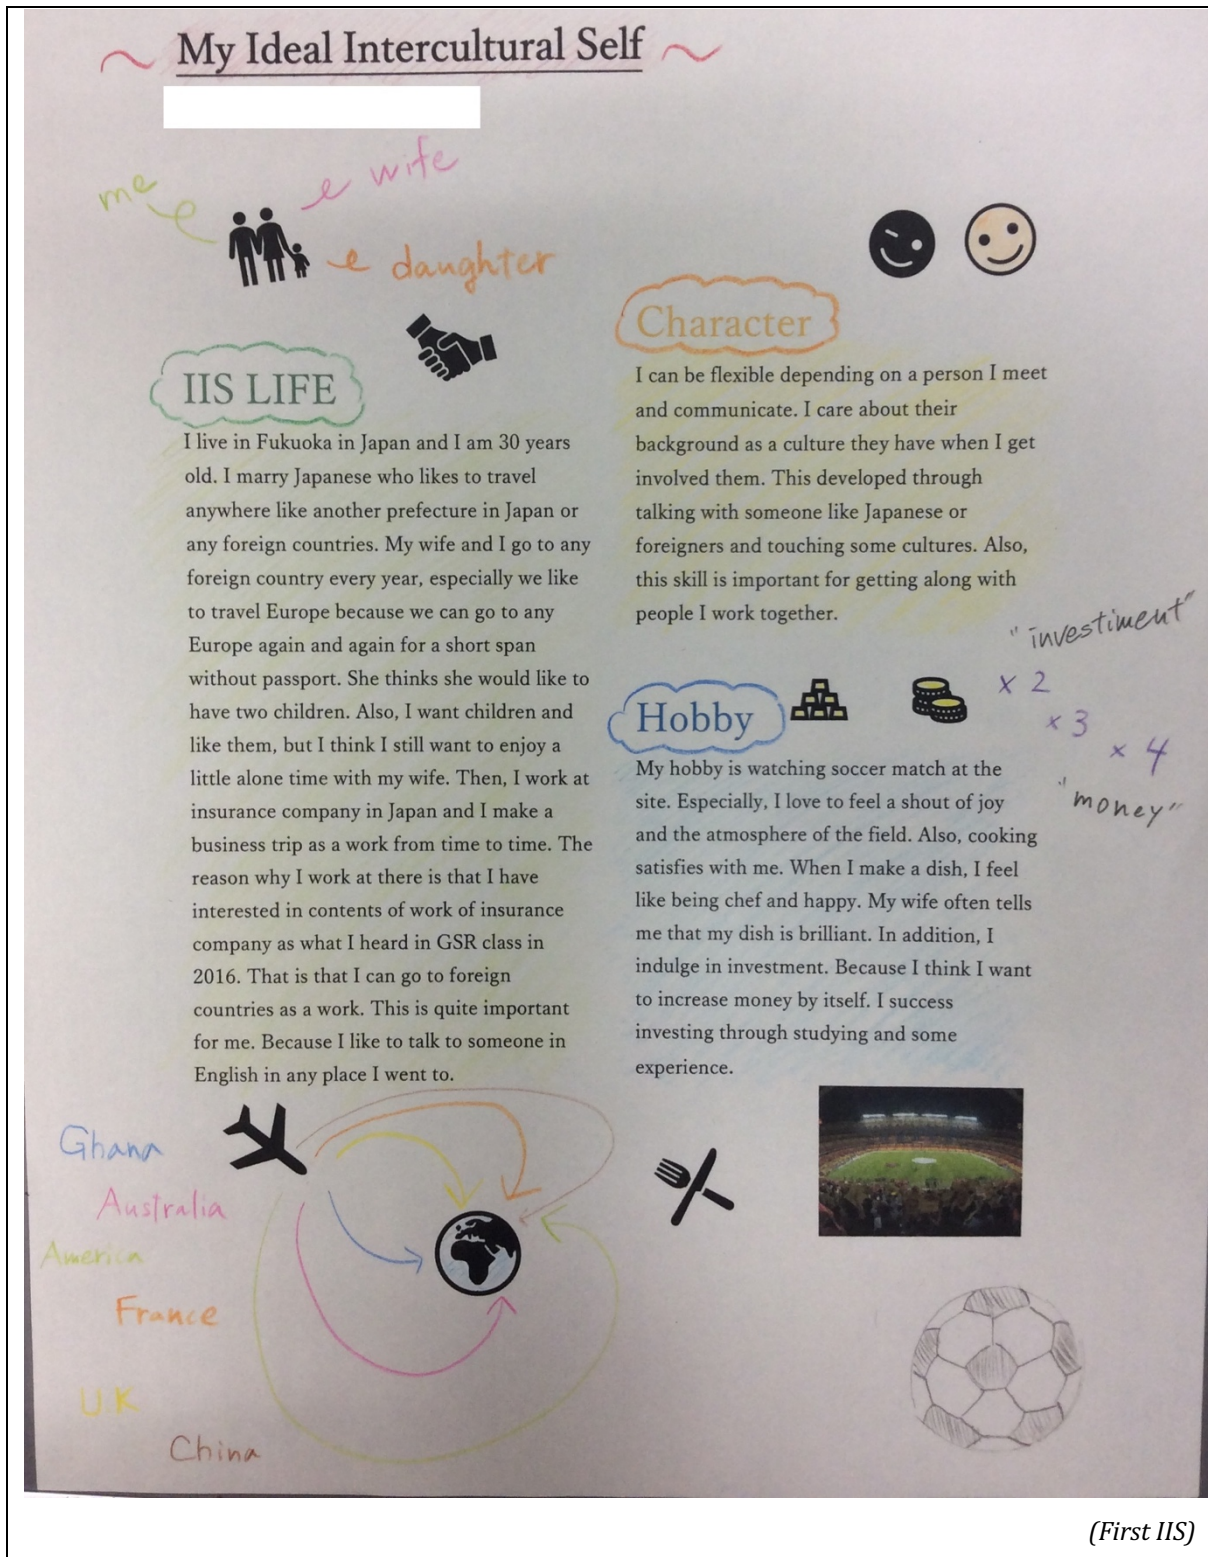 My Ideal Intercultural Self
me
wife
daughter
IIS LIFE
I live in Fukuoka in Japan and I am 30 years
old. I marry Japanese who likes to travel
anywhere like another prefecture in Japan or
any foreign countries. My wife and I go to any
foreign country every year, especially we like
to travel Europe because we can go to any
Europe again and again for a short span
without passport. She thinks she would like to
have two children. Also, I want children and
like them, but I think I still want to enjoy a
little alone time with my wife. Then, I work at
insurance company in Japan and I make a
business trip as a work from time to time. The
reason why I work at there is that I have
interested in contents of work of insurance
company as what I heard in GSR class in
2016. That is that I can go to foreign
countries as a work. This is quite important
for me. Because I like to talk to someone in
English in any place I went to.
Ghana
Australia
America
France
U.K
China
Character
I can be flexible depending on a person I meet
and communicate. I care about their
background as a culture they have when I get
involved them. This developed through
talking with someone like Japanese or
foreigners and touching some cultures. Also,
this skill is important for getting along with
people I work together.
"investiment"
× 2
× 3
× 4
"money"
Hobby
My hobby is watching soccer match at the
site. Especially, I love to feel a shout of joy
and the atmosphere of the field. Also, cooking
satisfies with me. When I make a dish, I feel
like being chef and happy. My wife often tells
me that my dish is brilliant. In addition, I
indulge in investment. Because I think I want
to increase money by itself. I success
investing through studying and some
experience.
(First IIS)